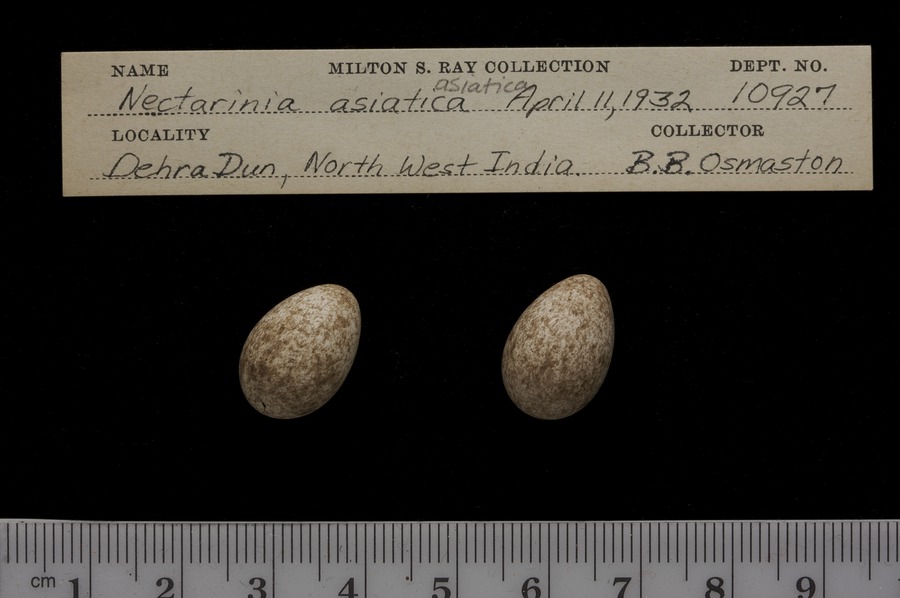 NAME MILTON S. RAY COLLECTION DEPT. NO.
asiatica
Nectarinia asiatica April 11, 1932 10927
LOCALITY COLLECTOR
Dehra Dun, North West India. B.B. Osmaston
cm 1 2 3 4 5 6 7 8 9